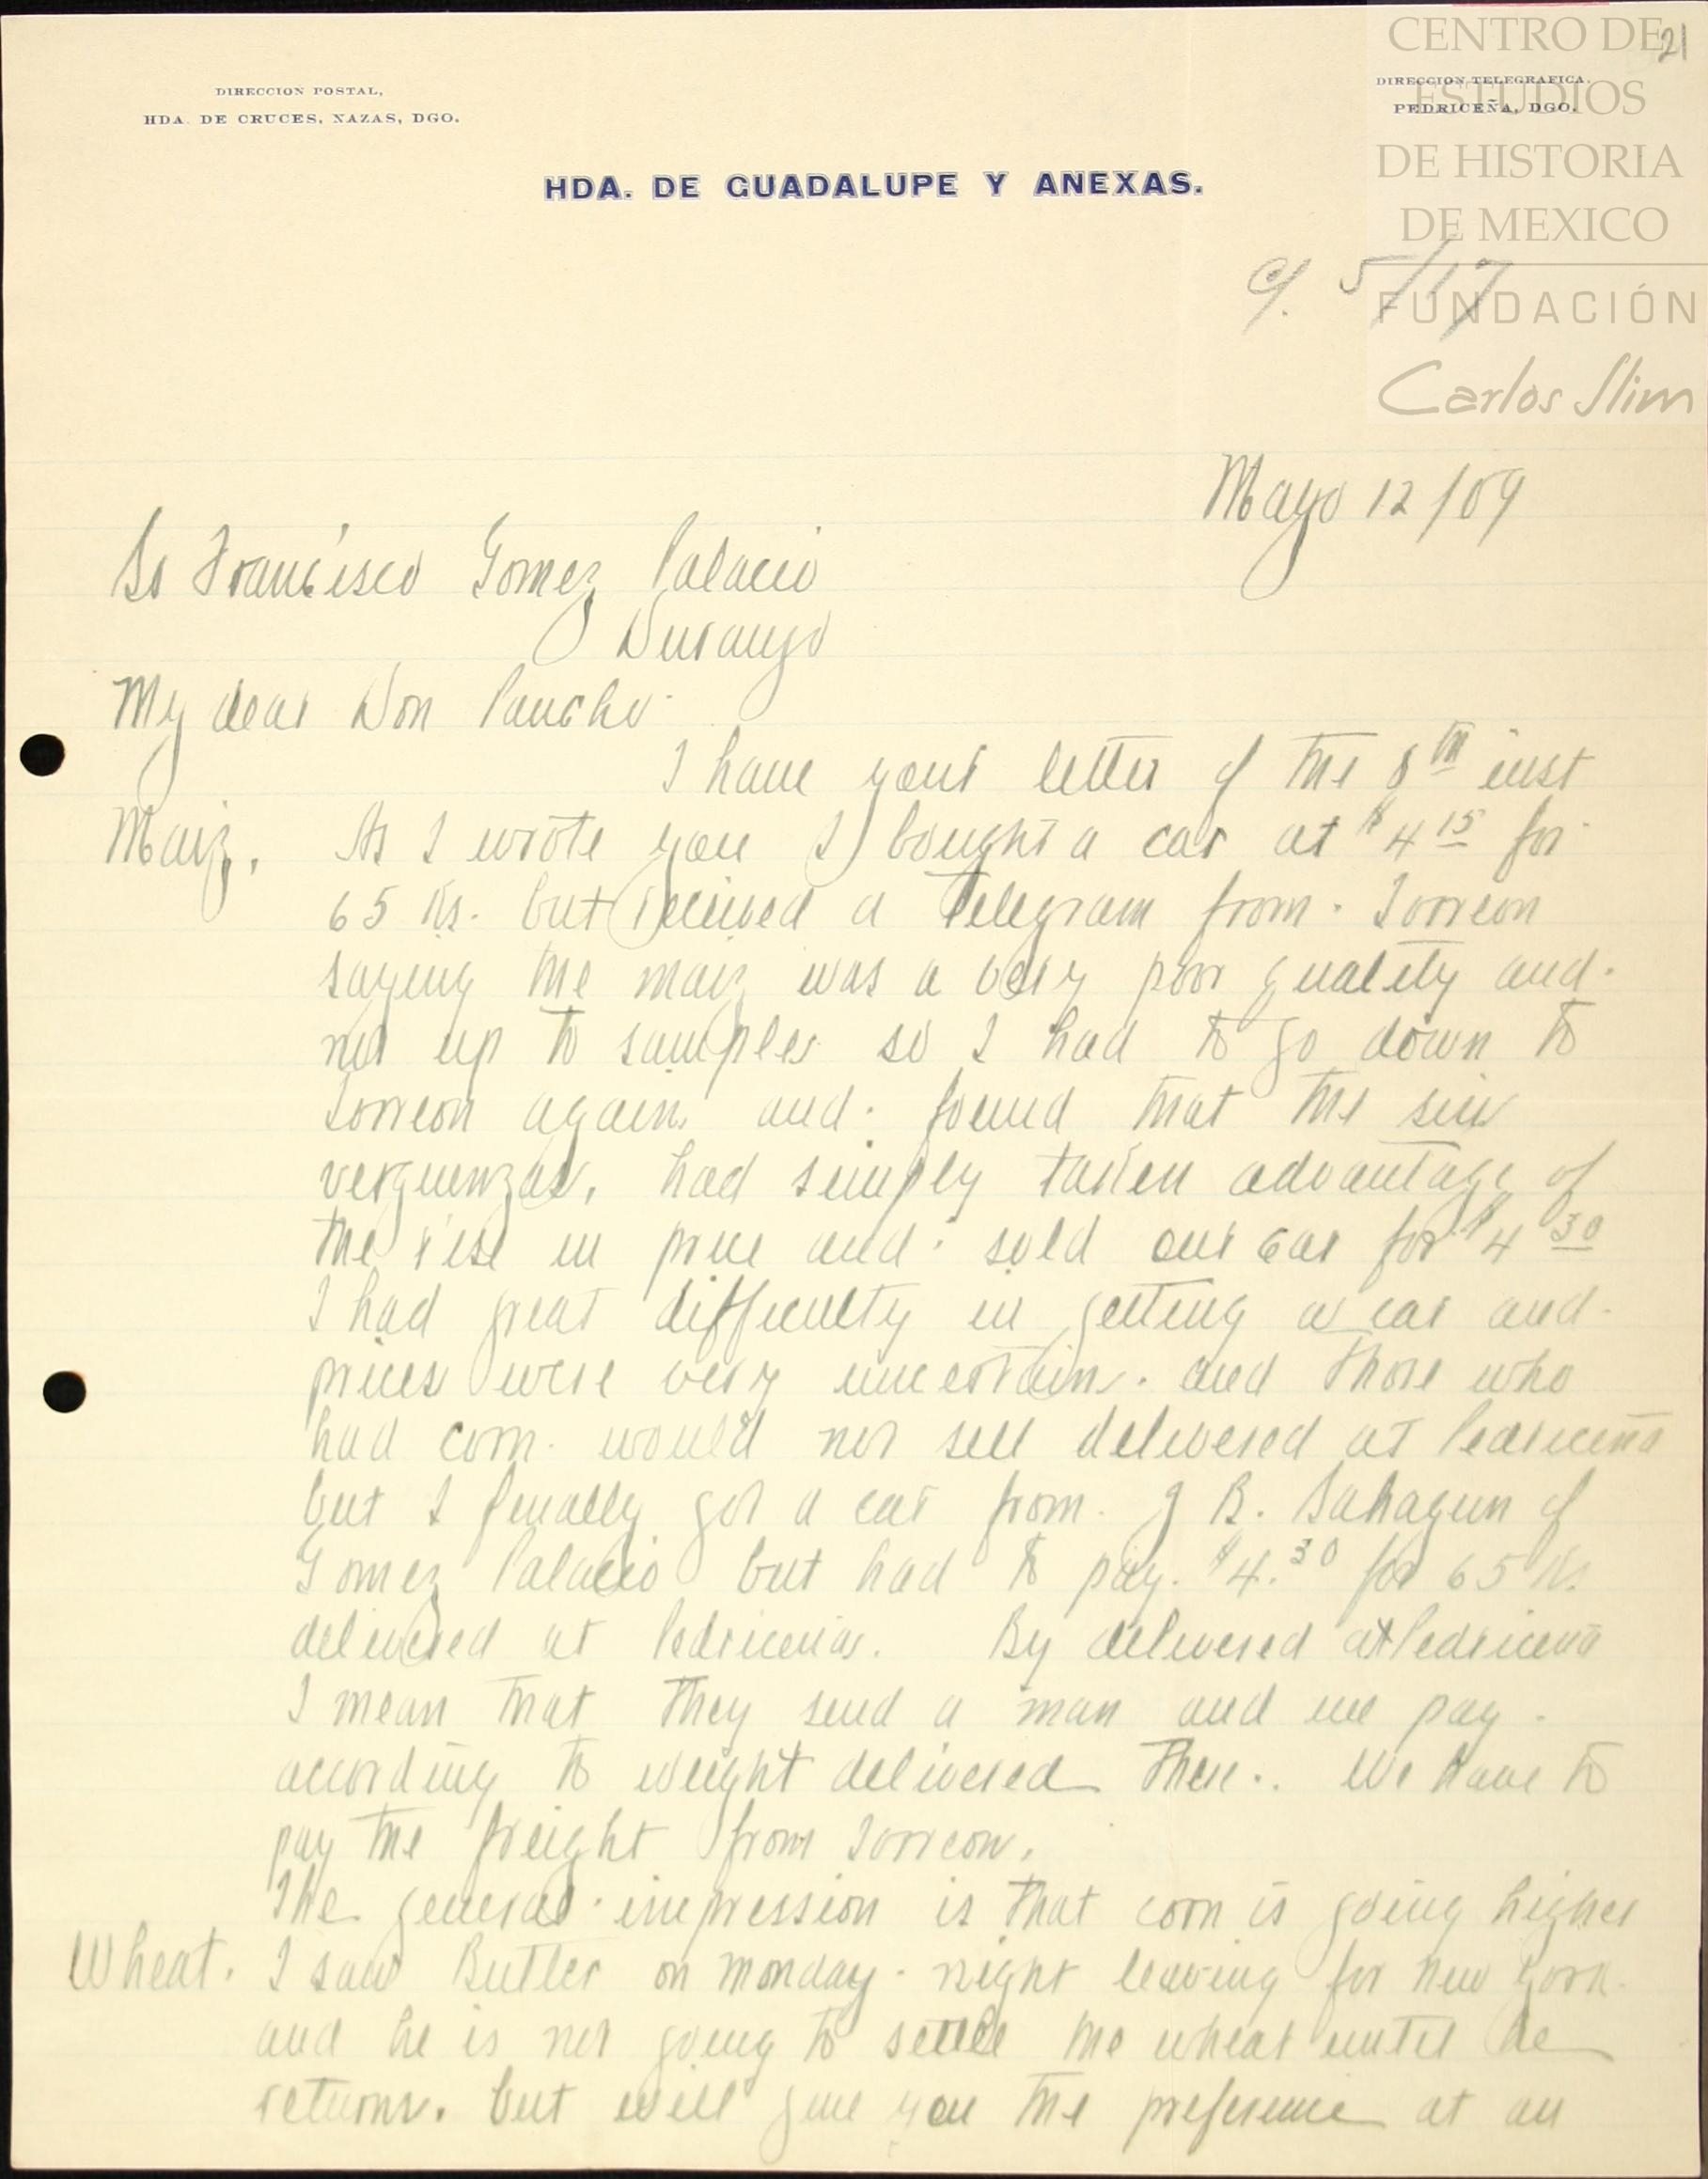 21
CENTRO DE
ESTUDIOS
DE HISTORIA
DE MEXICO
FUNDACIÓN
Carlos Slim
DIRECCION POSTAL,
HDA. DE CRUCES, NAZAS, DGO.
DIRECCION TELEGRAFICA.
PEDRICEÑA, DGO.
HDA. DE GUADALUPE Y ANEXAS.
c/. 5/17
Mayo 12/09
Sr Francisco Gomez Palacio
Durango
My dear Don Pancho
I have your letter of the 8th inst
Maiz. As I wrote you I bought a car at $4 15 for
65 Ks. but received a telegram from Torreon
saying the maiz was a very poor quality and
not up to samples so I had to go down to
Torreon again and found that the sin
verguenzas, had simply taken advantage of
the rise in price and sold our car for $4 30
I had great difficulty in getting a car and
prices were very uncertain. and those who
had corn would not sell delivered at Pedriceña
but I finally got a car from J B. Sahagun of
Gomez Palacio but had to pay $4.30 for 65 Ks.
delivered at Pedriceña. By delivered at Pedriceña
I mean that they send a man and we pay
according to weight delivered there.. We have to
pay the freight from Torreon.
The general impression is that corn is going higher
Wheat. I saw Butler on monday night leaving for New York
and he is not going to settle the wheat until he
returns. but will give you the preference at an